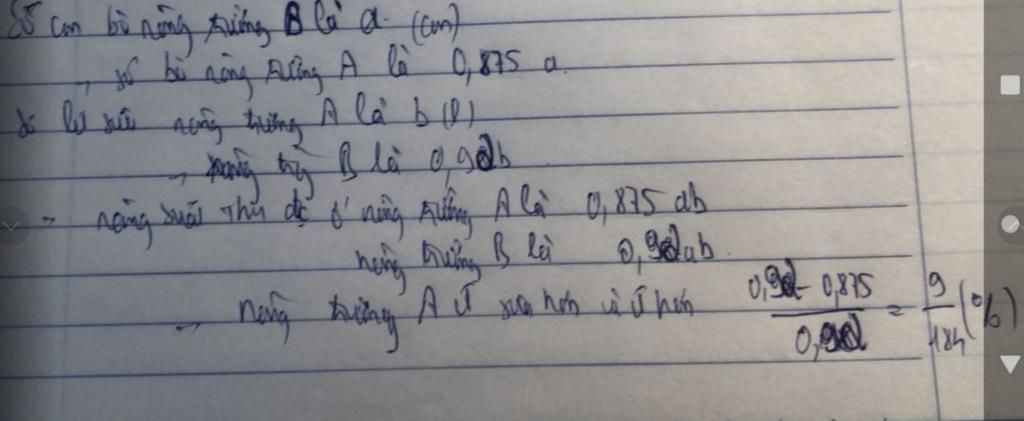 Số con bò nông trường B là a (con)
→ số bò nông trường A là 0,875 a
số lít sữa nông trường A là b (l)
→ nông trường B là 0,92b
→ năng suất thu đc ở nông trường A là 0,875 ab
nông trường B là 0,92ab
→ nông trường A ít sữa hơn và ít hơn (0,92 - 0,875)/0,92 = 9/184 (%)